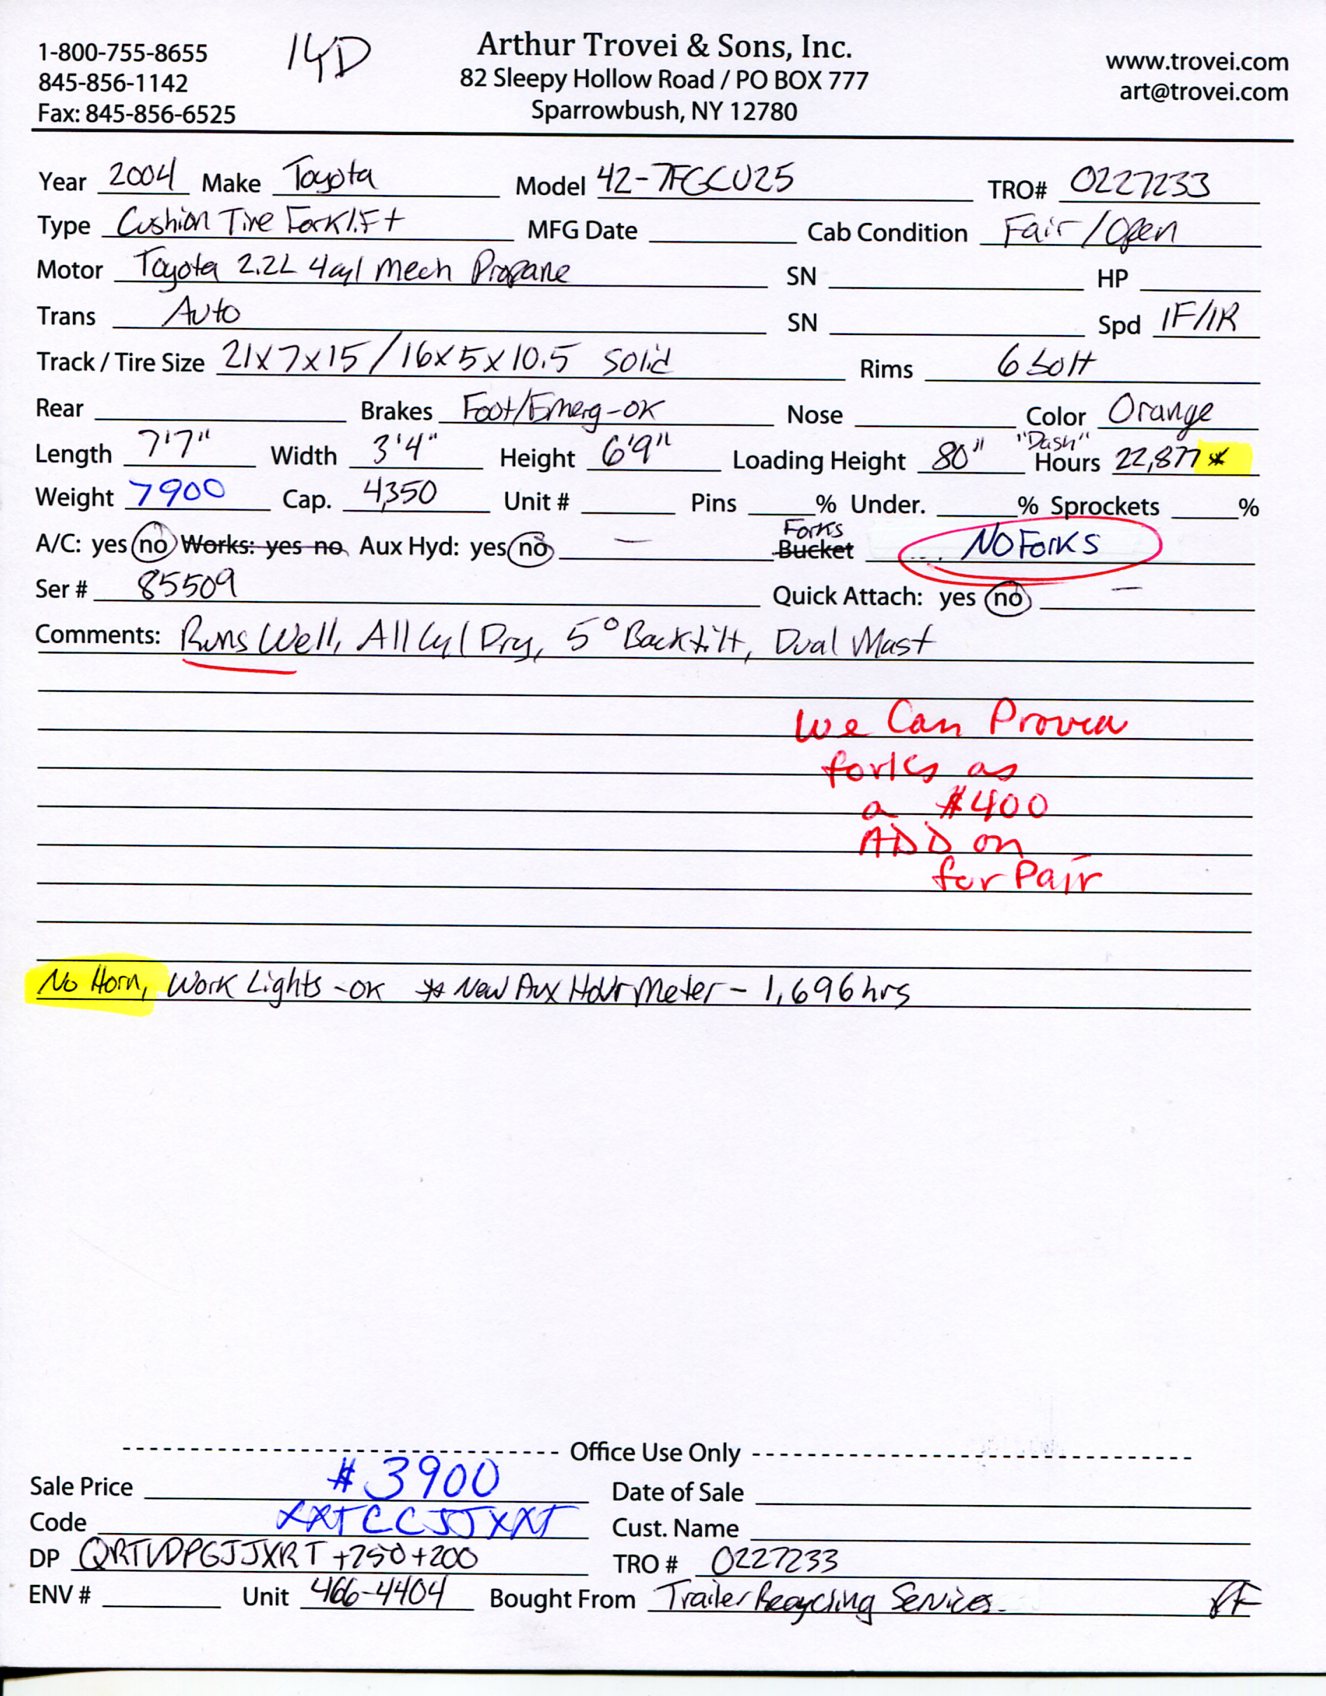 1-800-755-8655
845-856-1142
Fax: 845-856-6525
14D
Arthur Trovei & Sons, Inc.
82 Sleepy Hollow Road / PO BOX 777
Sparrowbush, NY 12780
www.trovei.com
art@trovei.com
Year 2004 Make Toyota Model 42-7FGCU25 TRO# 0227233
Type Cushion Tire Forklift MFG Date Cab Condition Fair/Open
Motor Toyota 2.2L 4cyl Mech Propane SN HP
Trans Auto SN Spd 1F/1R
Track / Tire Size 21x7x15 / 16x5x10.5 Solid Rims 6 bolt
Rear Brakes Foot/Emerg-OK Nose Color Orange
Length 7'7" Width 3'4" Height 6'9" Loading Height 80" "Dash" Hours 22,877 *
Weight 7900 Cap. 4,350 Unit # Pins % Under. % Sprockets %
A/C: yes no Works: yes no Aux Hyd: yes no — Forks Bucket No Forks
Ser # 85509 Quick Attach: yes no —
Comments: Runs Well, All Cyl Dry, 5° Backtilt, Dual Mast
We Can
forks as
a $400
ADD on
for Pair
No Horn, Work Lights-OK * New Aux Hour Meter - 1,696 hrs
Office Use Only
Sale Price $3900 Date of Sale
Code XXTCCJJXXT Cust. Name
DP +750+200 TRO # 0227233
ENV # Unit 466-4404 Bought From Trailer Recycling Services